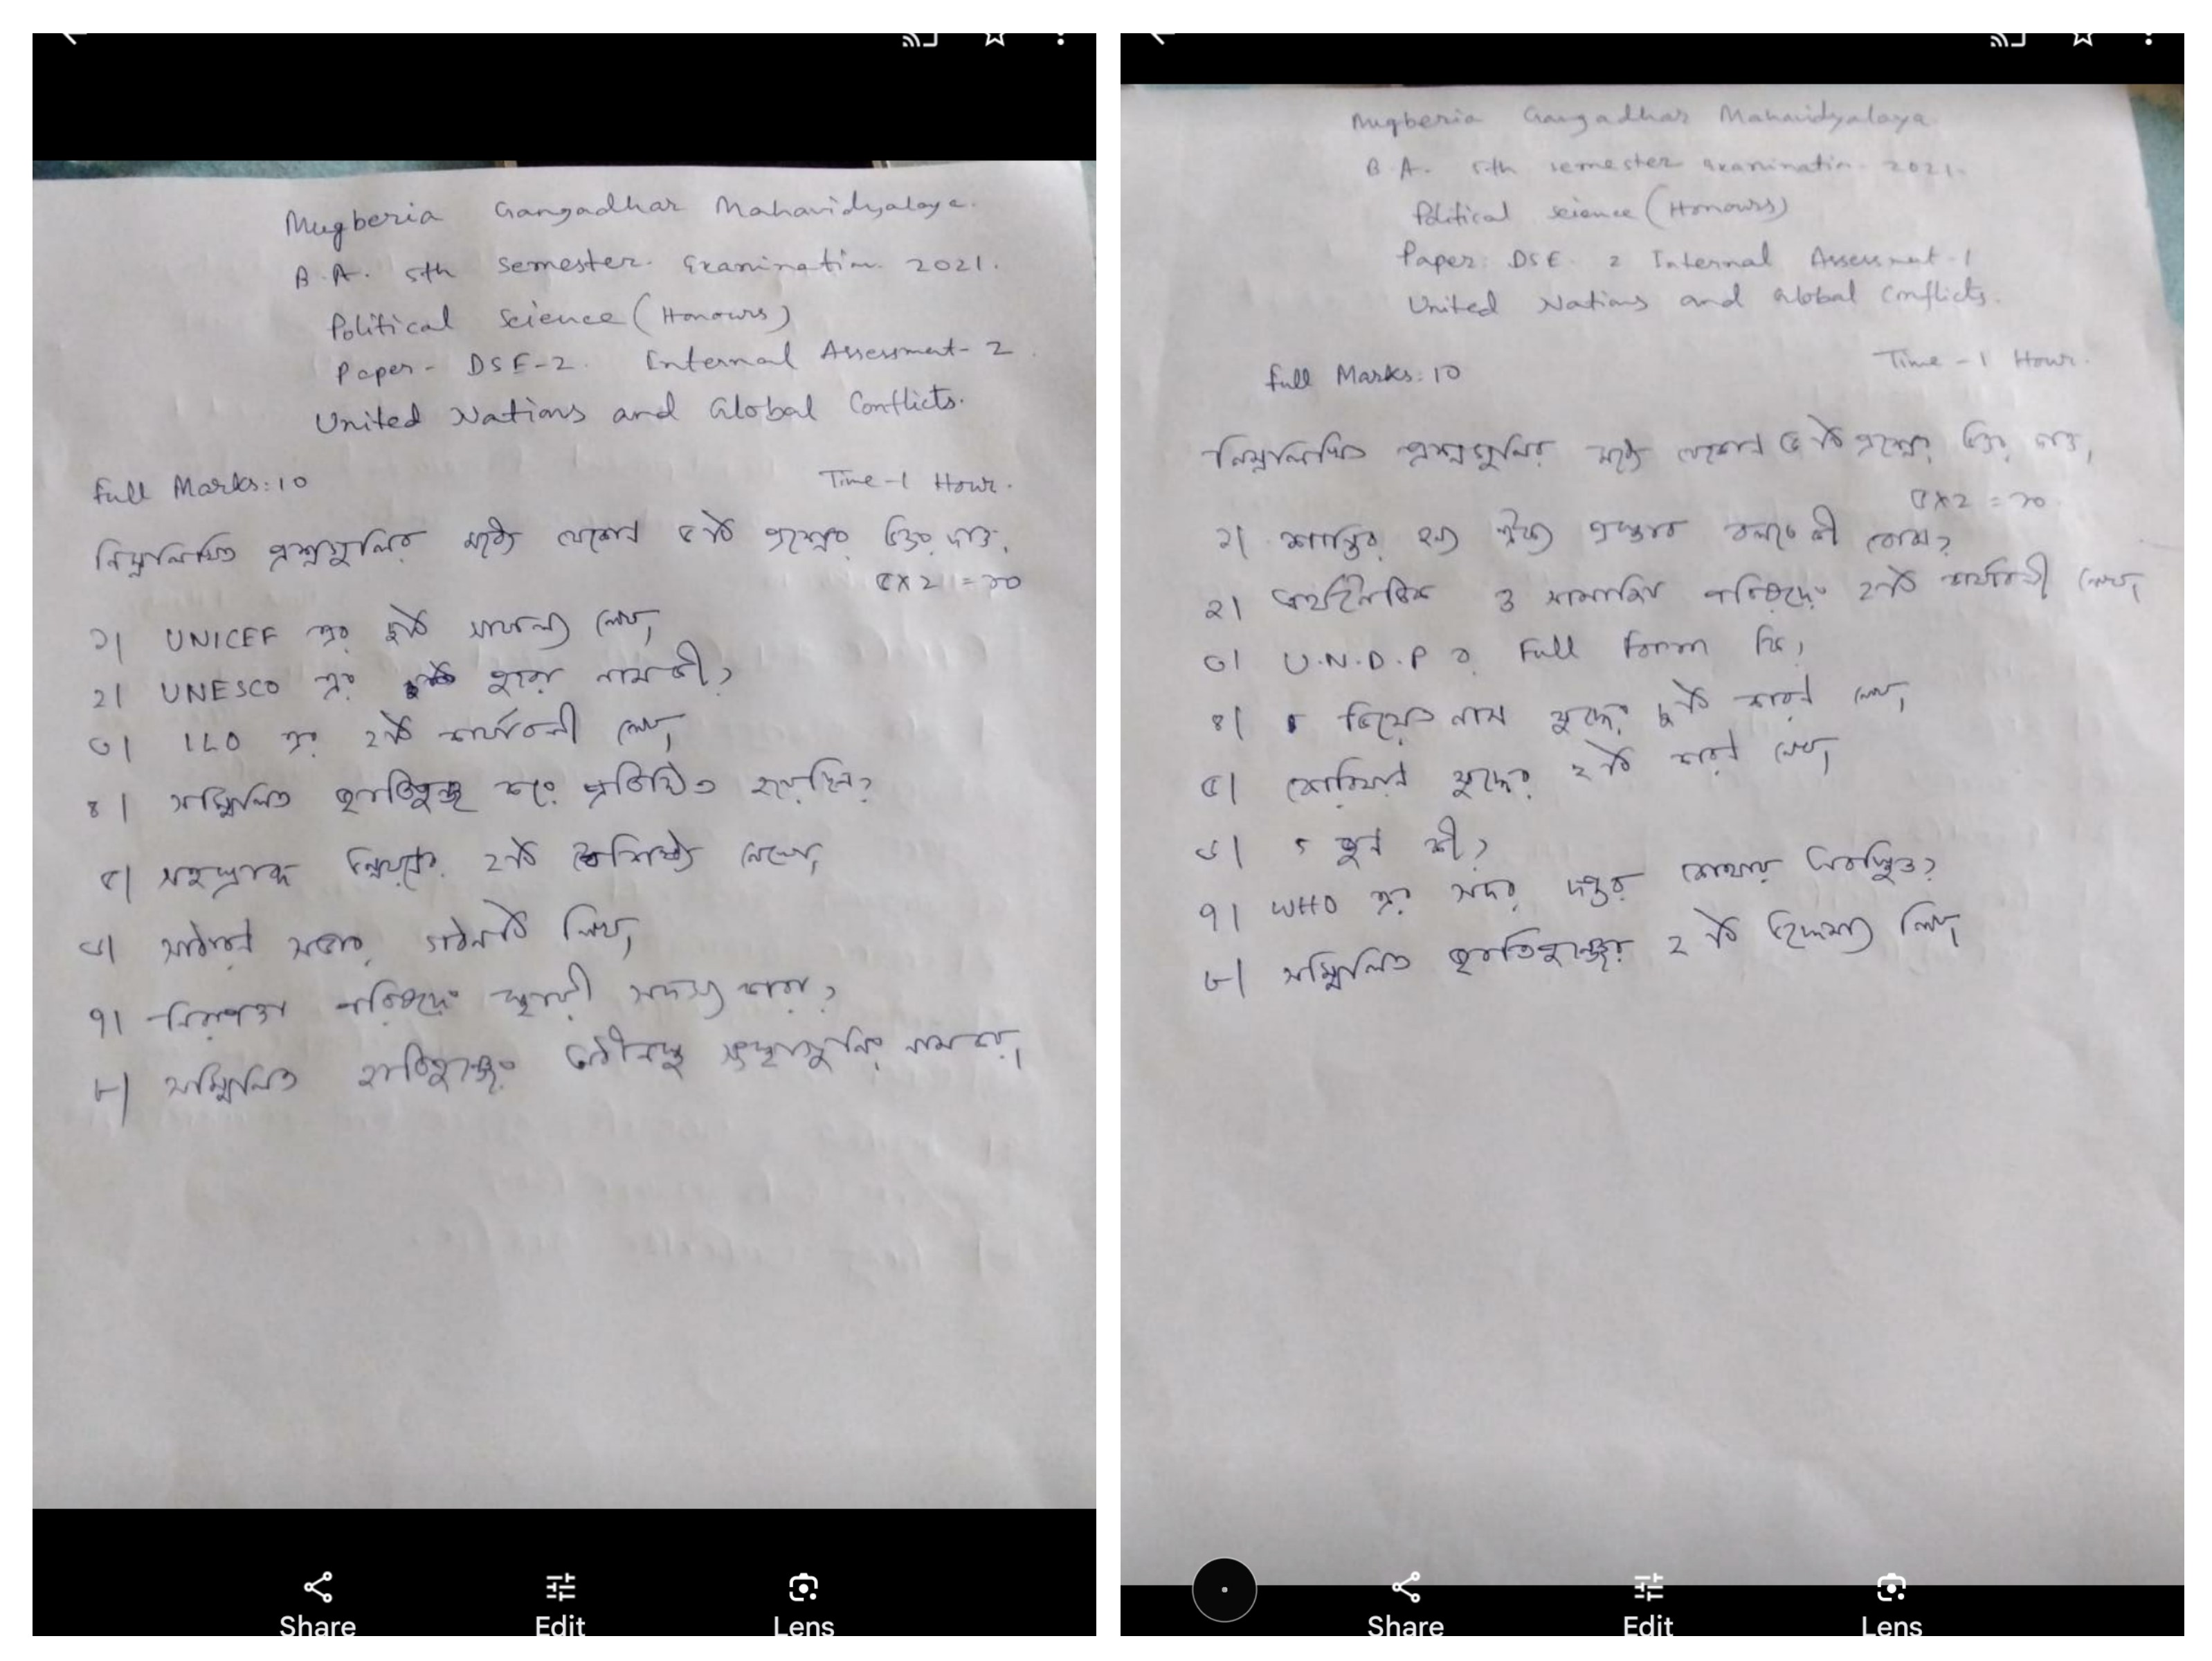 Mugberia Gangadhar Mahavidyalaya.
B.A. 5th Semester. Examination. 2021.
Political Science (Honours)
Paper - DSE-2. Internal Assessment- 2
United Nations and Global Conflicts.
Full Marks: 10 Time-1 Hour.
নিম্নলিখিত প্রশ্নগুলির মধ্যে যেকোন ৫টি প্রশ্নের উত্তর দাও,
৫x2 = ১০
১| UNICEF এর দুটি সাফল্য লেখ,
২| UNESCO এর পুরো নাম কী?
৩| ILO এর ২টি কার্যাবলী লেখ,
৪| সম্মিলিত জাতিপুঞ্জ কবে প্রতিষ্ঠিত হয়েছিল?
৫| সহস্রাব্দ উন্নয়নের ২টি বৈশিষ্ট্য লেখো,
৬| সাধারণ সভার গঠনটি লিখ,
৭| নিরাপত্তা পরিষদের স্থায়ী সদস্য কারা?
৮| সম্মিলিত জাতিপুঞ্জের সংস্থাগুলির নাম কর,
Share Edit Lens
Mugberia Gangadhar Mahavidyalaya
B.A. 5th semester examination 2021.
Political science (Honours)
Paper: DSE- 2 Internal Assessment-1
United Nations and Global Conflicts.
Full Marks: 10 Time -1 Hour.
নিম্নলিখিত প্রশ্নগুলির মধ্যে যেকোন ৫টি প্রশ্নের উত্তর দাও,
৫x2 = ১০
১| শান্তির জন্য ঐক্য প্রস্তাব বলতে কী বোঝ?
২| অর্থনৈতিক ও সামাজিক পরিষদের ২টি কার্যাবলী লেখ,
৩| U.N.D.P র Full Form কি?
৪| ভিয়েতনাম যুদ্ধের দুটি কারণ লেখ,
৫| কোরিয়ান যুদ্ধের ২টি কারণ লেখ,
৬| কী?
৭| WHO এর সদর দপ্তর কোথায় অবস্থিত?
৮| সম্মিলিত জাতিপুঞ্জের ২টি উদ্দেশ্য লিখ,
Share Edit Lens